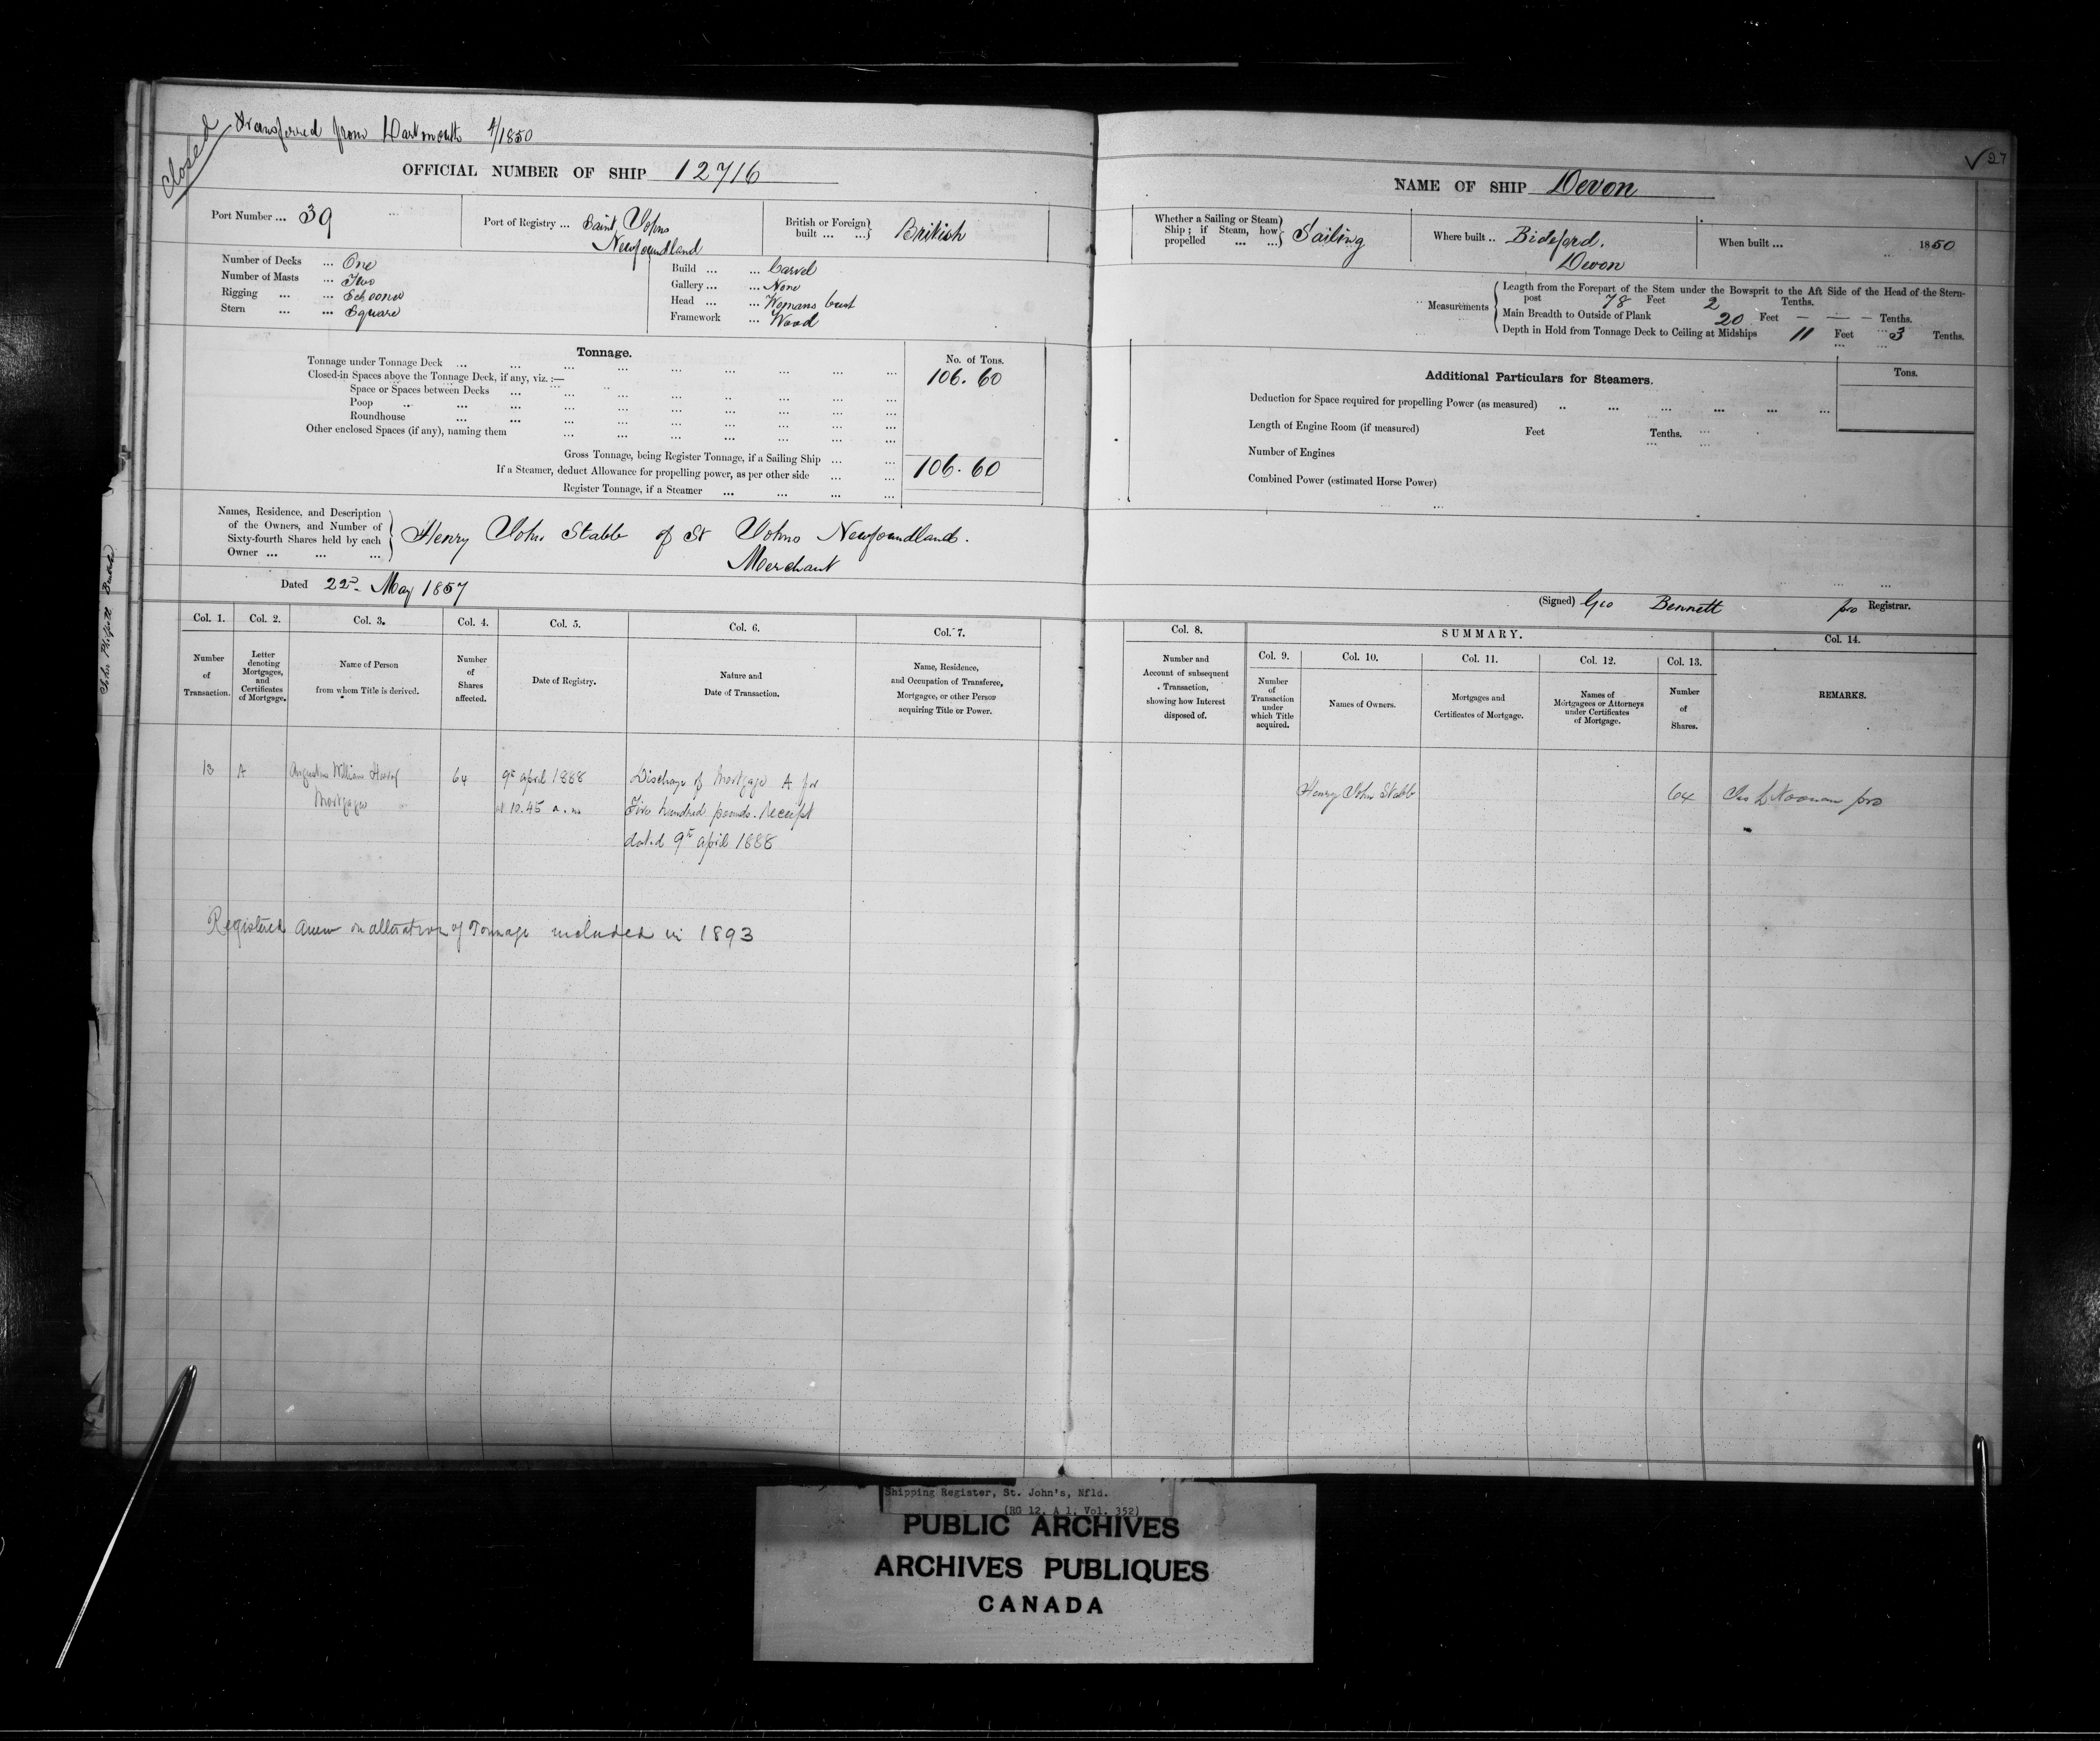 closed
Transferred from Dartmouth 4/1850
OFFICIAL NUMBER OF SHIP 12716
Port Number ... 39
Port of Registry ... Saint Johns
Newfoundland
British or Foreign built ... ... British
Number of Decks ... One
Number of Masts ... Two
Rigging ... ... Schooner
Stern ... ... Square
Build ... ... Carvel
Gallery ... ... None
Head ... ... Womans bust
Framework ... Wood
Tonnage.
No. of Tons.
Tonnage under Tonnage Deck ... 106.60
Closed-in Spaces above the Tonnage Deck, if any, viz. :—
Space or Spaces between Decks
Poop
Roundhouse
Other enclosed Spaces (if any), naming them
Gross Tonnage, being Register Tonnage, if a Sailing Ship ... ... 106.60
If a Steamer, deduct Allowance for propelling power, as per other side ... ...
Register Tonnage, if a Steamer ... ... ... ...
Names, Residence, and Description
of the Owners, and Number of
Sixty-fourth Shares held by each
Owner ... ... ...
Henry John Stabb of St Johns Newfoundland.
Merchant
Dated 22nd May 1857
Col. 1. Number of Transaction.
Col. 2. Letter denoting Mortgages, and Certificates of Mortgage.
Col. 3. Name of Person from whom Title is derived.
Col. 4. Number of Shares affected.
Col. 5. Date of Registry.
Col. 6. Nature and Date of Transaction.
Col. 7. Name, Residence, and Occupation of Transferee, Mortgagee, or other Person acquiring Title or Power.
13 A Augustus William
Mortgagee
64
9th april 1888
at 10.45 a.m
Discharge of Mortgage A for
Five hundred pounds. Receipt
dated 9th april 1888
Registered anew on alteration of Tonnage included in 1893
27
NAME OF SHIP Devon
Whether a Sailing or Steam
Ship; if Steam, how
propelled ... ...
Sailing
Where built .. Bideford.
Devon
When built ... 1850
Measurements
Length from the Forepart of the Stem under the Bowsprit to the Aft Side of the Head of the Stern-
post 78 Feet 2 Tenths.
Main Breadth to Outside of Plank 20 Feet — — — Tenths.
Depth in Hold from Tonnage Deck to Ceiling at Midships 11 Feet 3 Tenths.
Additional Particulars for Steamers.
Tons.
Deduction for Space required for propelling Power (as measured)
Length of Engine Room (if measured) Feet Tenths.
Number of Engines
Combined Power (estimated Horse Power)
(Signed) Geo Bennett pro Registrar.
Col. 8. Number and Account of subsequent Transaction, showing how Interest disposed of.
SUMMARY.
Col. 9. Number of Transaction under which Title acquired.
Col. 10. Names of Owners.
Col. 11. Mortgages and Certificates of Mortgage.
Col. 12. Names of Mortgagees or Attorneys under Certificates of Mortgage.
Col. 13. Number of Shares.
Col. 14. REMARKS.
Henry John Stabb
64
Noonan pro
Shipping Register, St. John's, Nfld.
(RG 12, A 1, Vol. 352)
PUBLIC ARCHIVES
ARCHIVES PUBLIQUES
CANADA